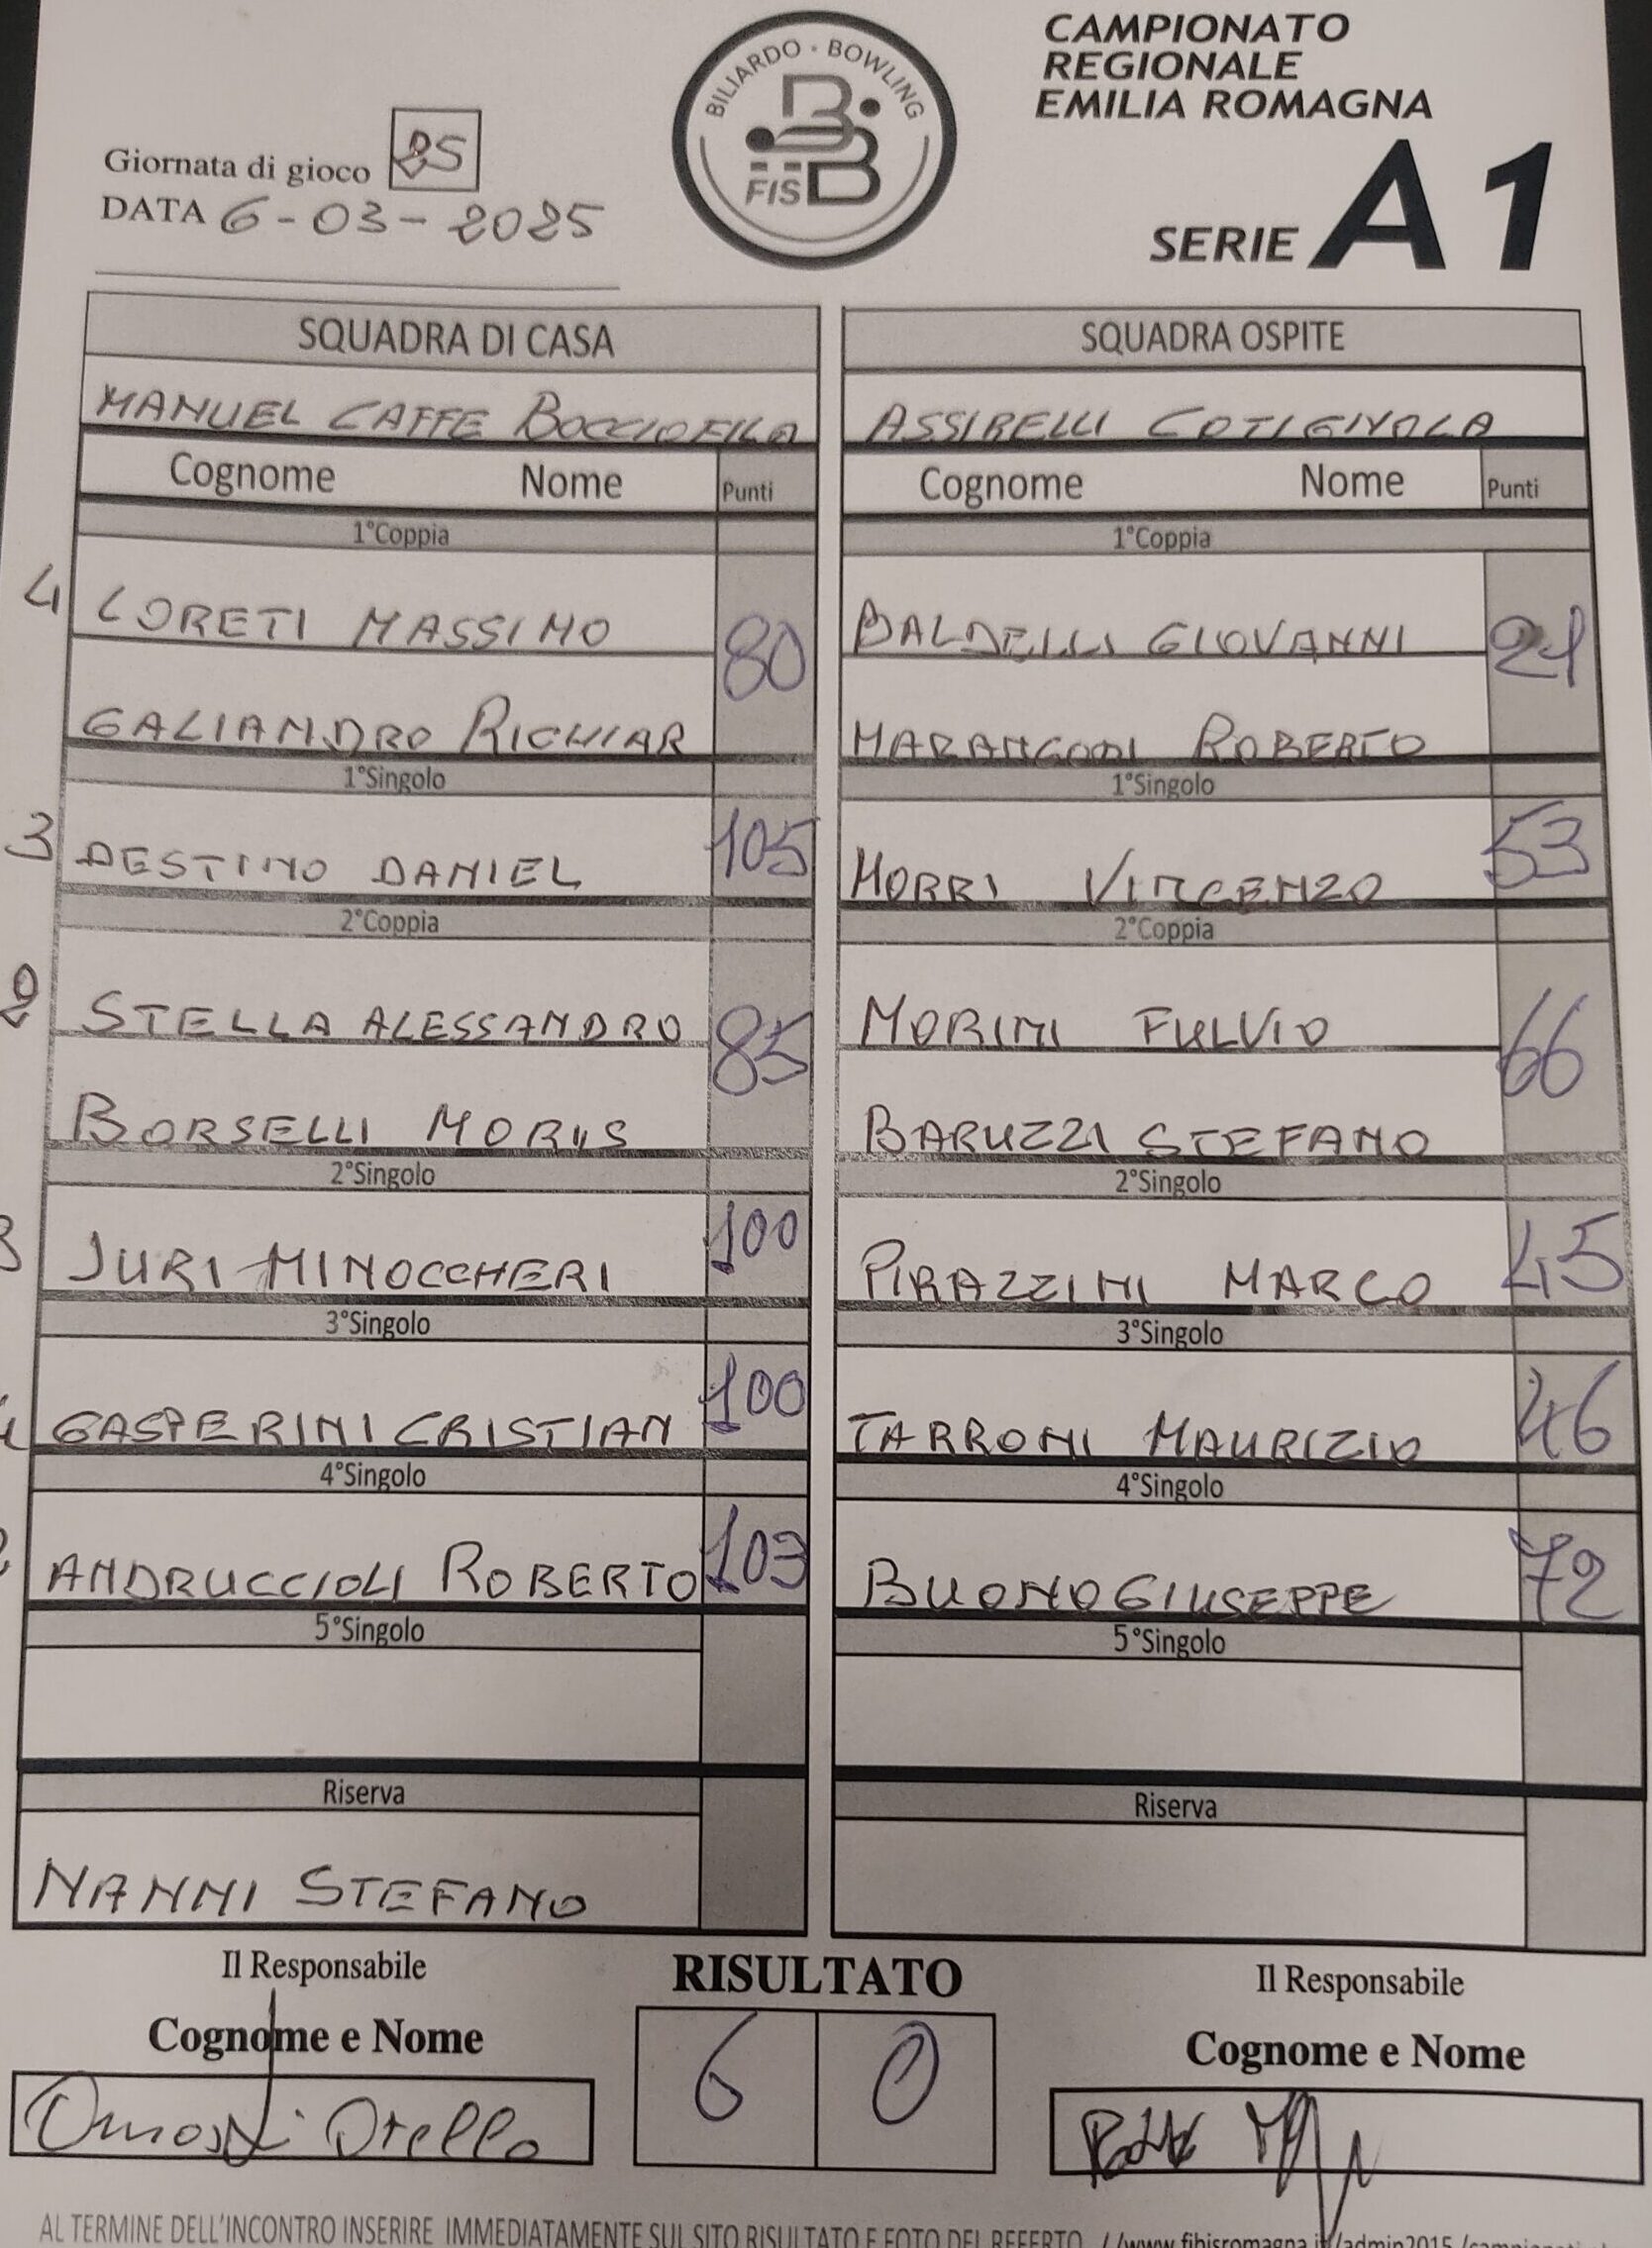 BILIARDO · BOWLING
FISBB
CAMPIONATO
REGIONALE
EMILIA ROMAGNA
SERIE A1
Giornata di gioco 25
DATA 6-03-2025
SQUADRA DI CASA
MANUEL CAFFE BOCCIOFILA
Cognome Nome Punti
1°Coppia
4 LORETI MASSIMO
80
GALIANDRO RICHIAR
1°Singolo
3 DESTINO DANIEL 105
2°Coppia
2 STELLA ALESSANDRO
85
BORSELLI MORIIS
2°Singolo
3 JURI MINOCCHERI 100
3°Singolo
GASPERINI CRISTIAN 100
4°Singolo
ANDRUCCIOLI ROBERTO 103
5°Singolo
Riserva
NANNI STEFANO
SQUADRA OSPITE
ASSIRELLI COTIGNOLA
Cognome Nome Punti
1°Coppia
BALDELLI GIOVANNI
21
MARANGONI ROBERTO
1°Singolo
MORRI VINCENZO 53
2°Coppia
MORINI FULVIO
66
BARUZZI STEFANO
2°Singolo
PIRAZZINI MARCO 45
3°Singolo
TARRONI MAURIZIO 46
4°Singolo
BUONO GIUSEPPE 72
5°Singolo
Riserva
Il Responsabile
Cognome e Nome
Otello
RISULTATO
6 0
Il Responsabile
Cognome e Nome
AL TERMINE DELL'INCONTRO INSERIRE IMMEDIATAMENTE SUL SITO RISULTATO E FOTO DEL REFERTO